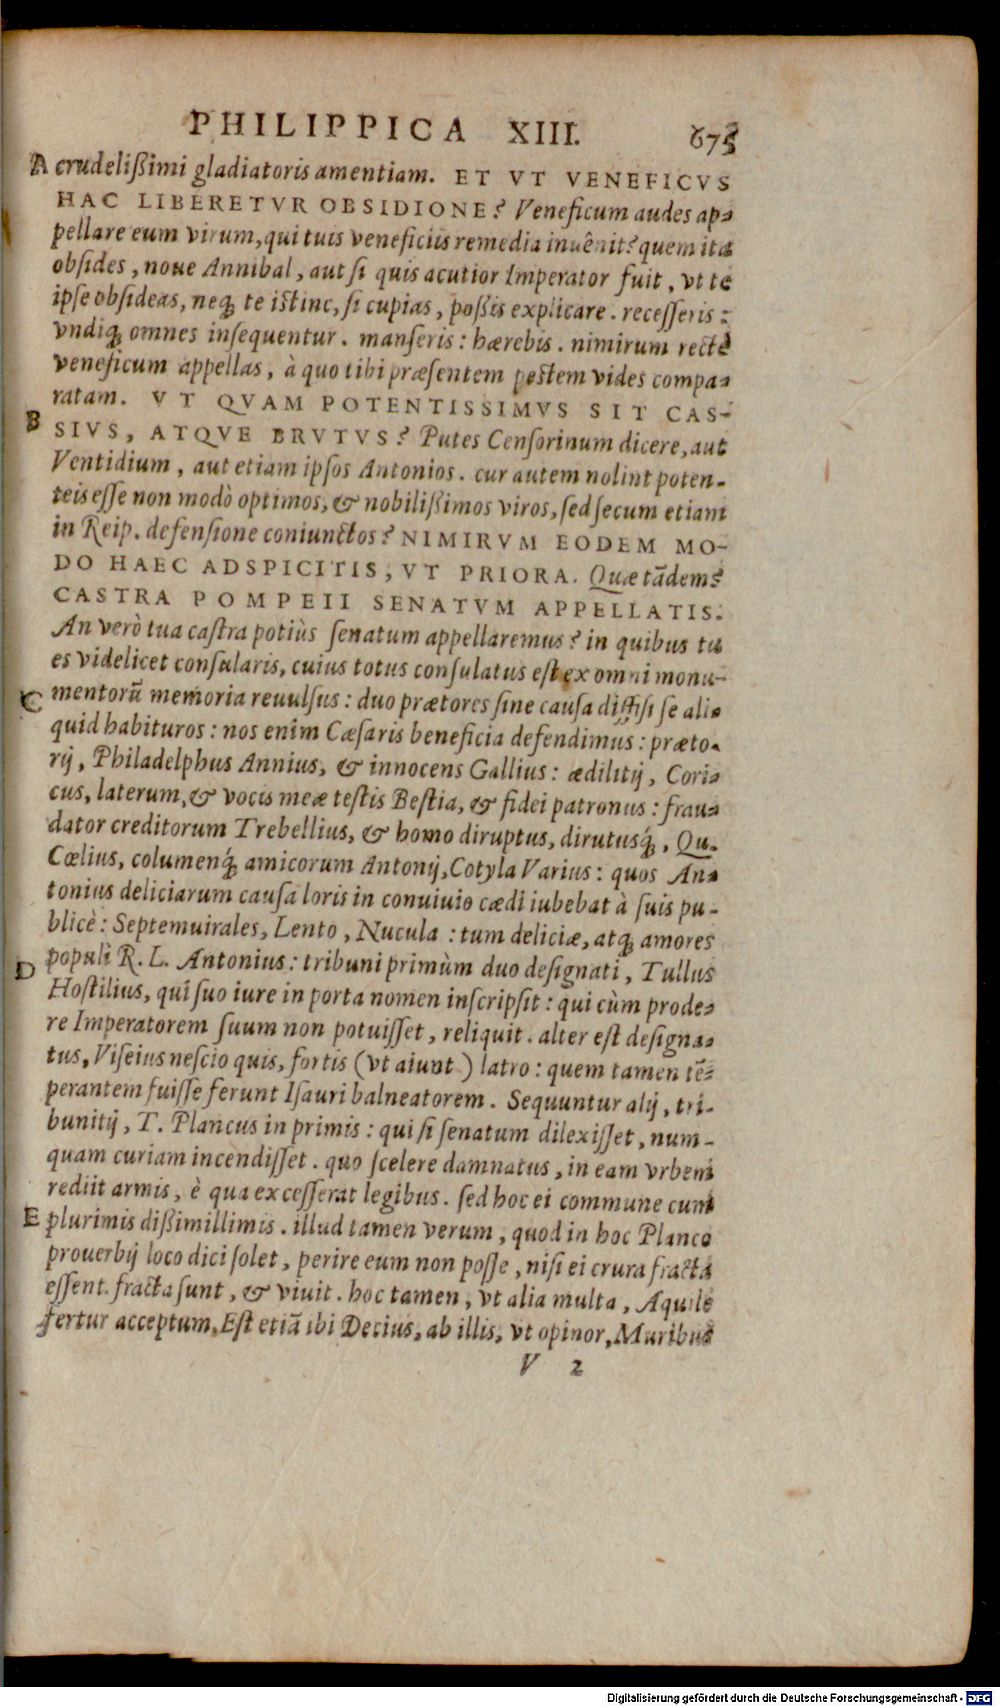 PHILIPPICA XIII. 675
A crudelißimi gladiatoris amentiam. ET VT VENEFICVS
HAC LIBERETVR OBSIDIONE? Veneficum audes ap-
pellare eum virum, qui tuis veneficiis remedia inuênit? quem ita
obsides, noue Annibal, aut si quis acutior Imperator fuit, vt te
ipse obsideas, neq; te istinc, si cupias, poßis explicare. recesseris:
vndiq; omnes insequentur. manseris: hærebis. nimirum rectè
veneficum appellas, à quo tibi præsentem pestem vides compa-
ratam. VT QVAM POTENTISSIMVS SIT CAS-
B SIVS, ATQVE BRVTVS? Putes Censorinum dicere, aut
Ventidium, aut etiam ipsos Antonios. cur autem nolint poten-
teis esse non modò optimos, & nobilißimos viros, sed secum etiam
in Reip. defensione coniunctos? NIMIRVM EODEM MO-
DO HAEC ADSPICITIS, VT PRIORA. Quæ tādem?
CASTRA POMPEII SENATVM APPELLATIS.
An verò tua castra potiùs senatum appellaremus? in quibus tu
es videlicet consularis, cuius totus consulatus est ex omni monu-
C mentorū memoria reuulsus: duo prætores sine causa diffisi se ali-
quid habituros: nos enim Cæsaris beneficia defendimus: præto-
rij, Philadelphus Annius, & innocens Gallius: ædilitij, Cori-
cus, laterum, & vocis meæ testis Bestia, & fidei patronus: frau-
dator creditorum Trebellius, & homo diruptus, dirutusq́;, Qu.
Cœlius, columenq́; amicorum Antonij, Cotyla Varius: quos An-
tonius deliciarum causa loris in conuiuio cædi iubebat à suis pu-
blicè: Septemuirales, Lento, Nucula: tum deliciæ, atq; amores
D populi R. L. Antonius: tribuni primùm duo designati, Tullus
Hostilius, qui suo iure in porta nomen inscripsit: qui cùm prode-
re Imperatorem suum non potuisset, reliquit. alter est designa-
tus, Viseius nescio quis, fortis (vt aiunt) latro: quem tamen tē-
perantem fuisse ferunt Isauri balneatorem. Sequuntur alij, tri-
bunitij, T. Plancus in primis: qui si senatum dilexisset, num-
quam curiam incendisset. quo scelere damnatus, in eam vrbem
rediit armis, è qua excesserat legibus. sed hoc ei commune cum
E plurimis dißimillimis. illud tamen verum, quod in hoc Planco
prouerbij loco dici solet, perire eum non posse, nisi ei crura fracta
essent. fracta sunt, & viuit. hoc tamen, vt alia multa, Aquile
fertur acceptum. Est etiā ibi Decius, ab illis, vt opinor, Muribus
V 2
Digitalisierung gefördert durch die Deutsche Forschungsgemeinschaft - DFG